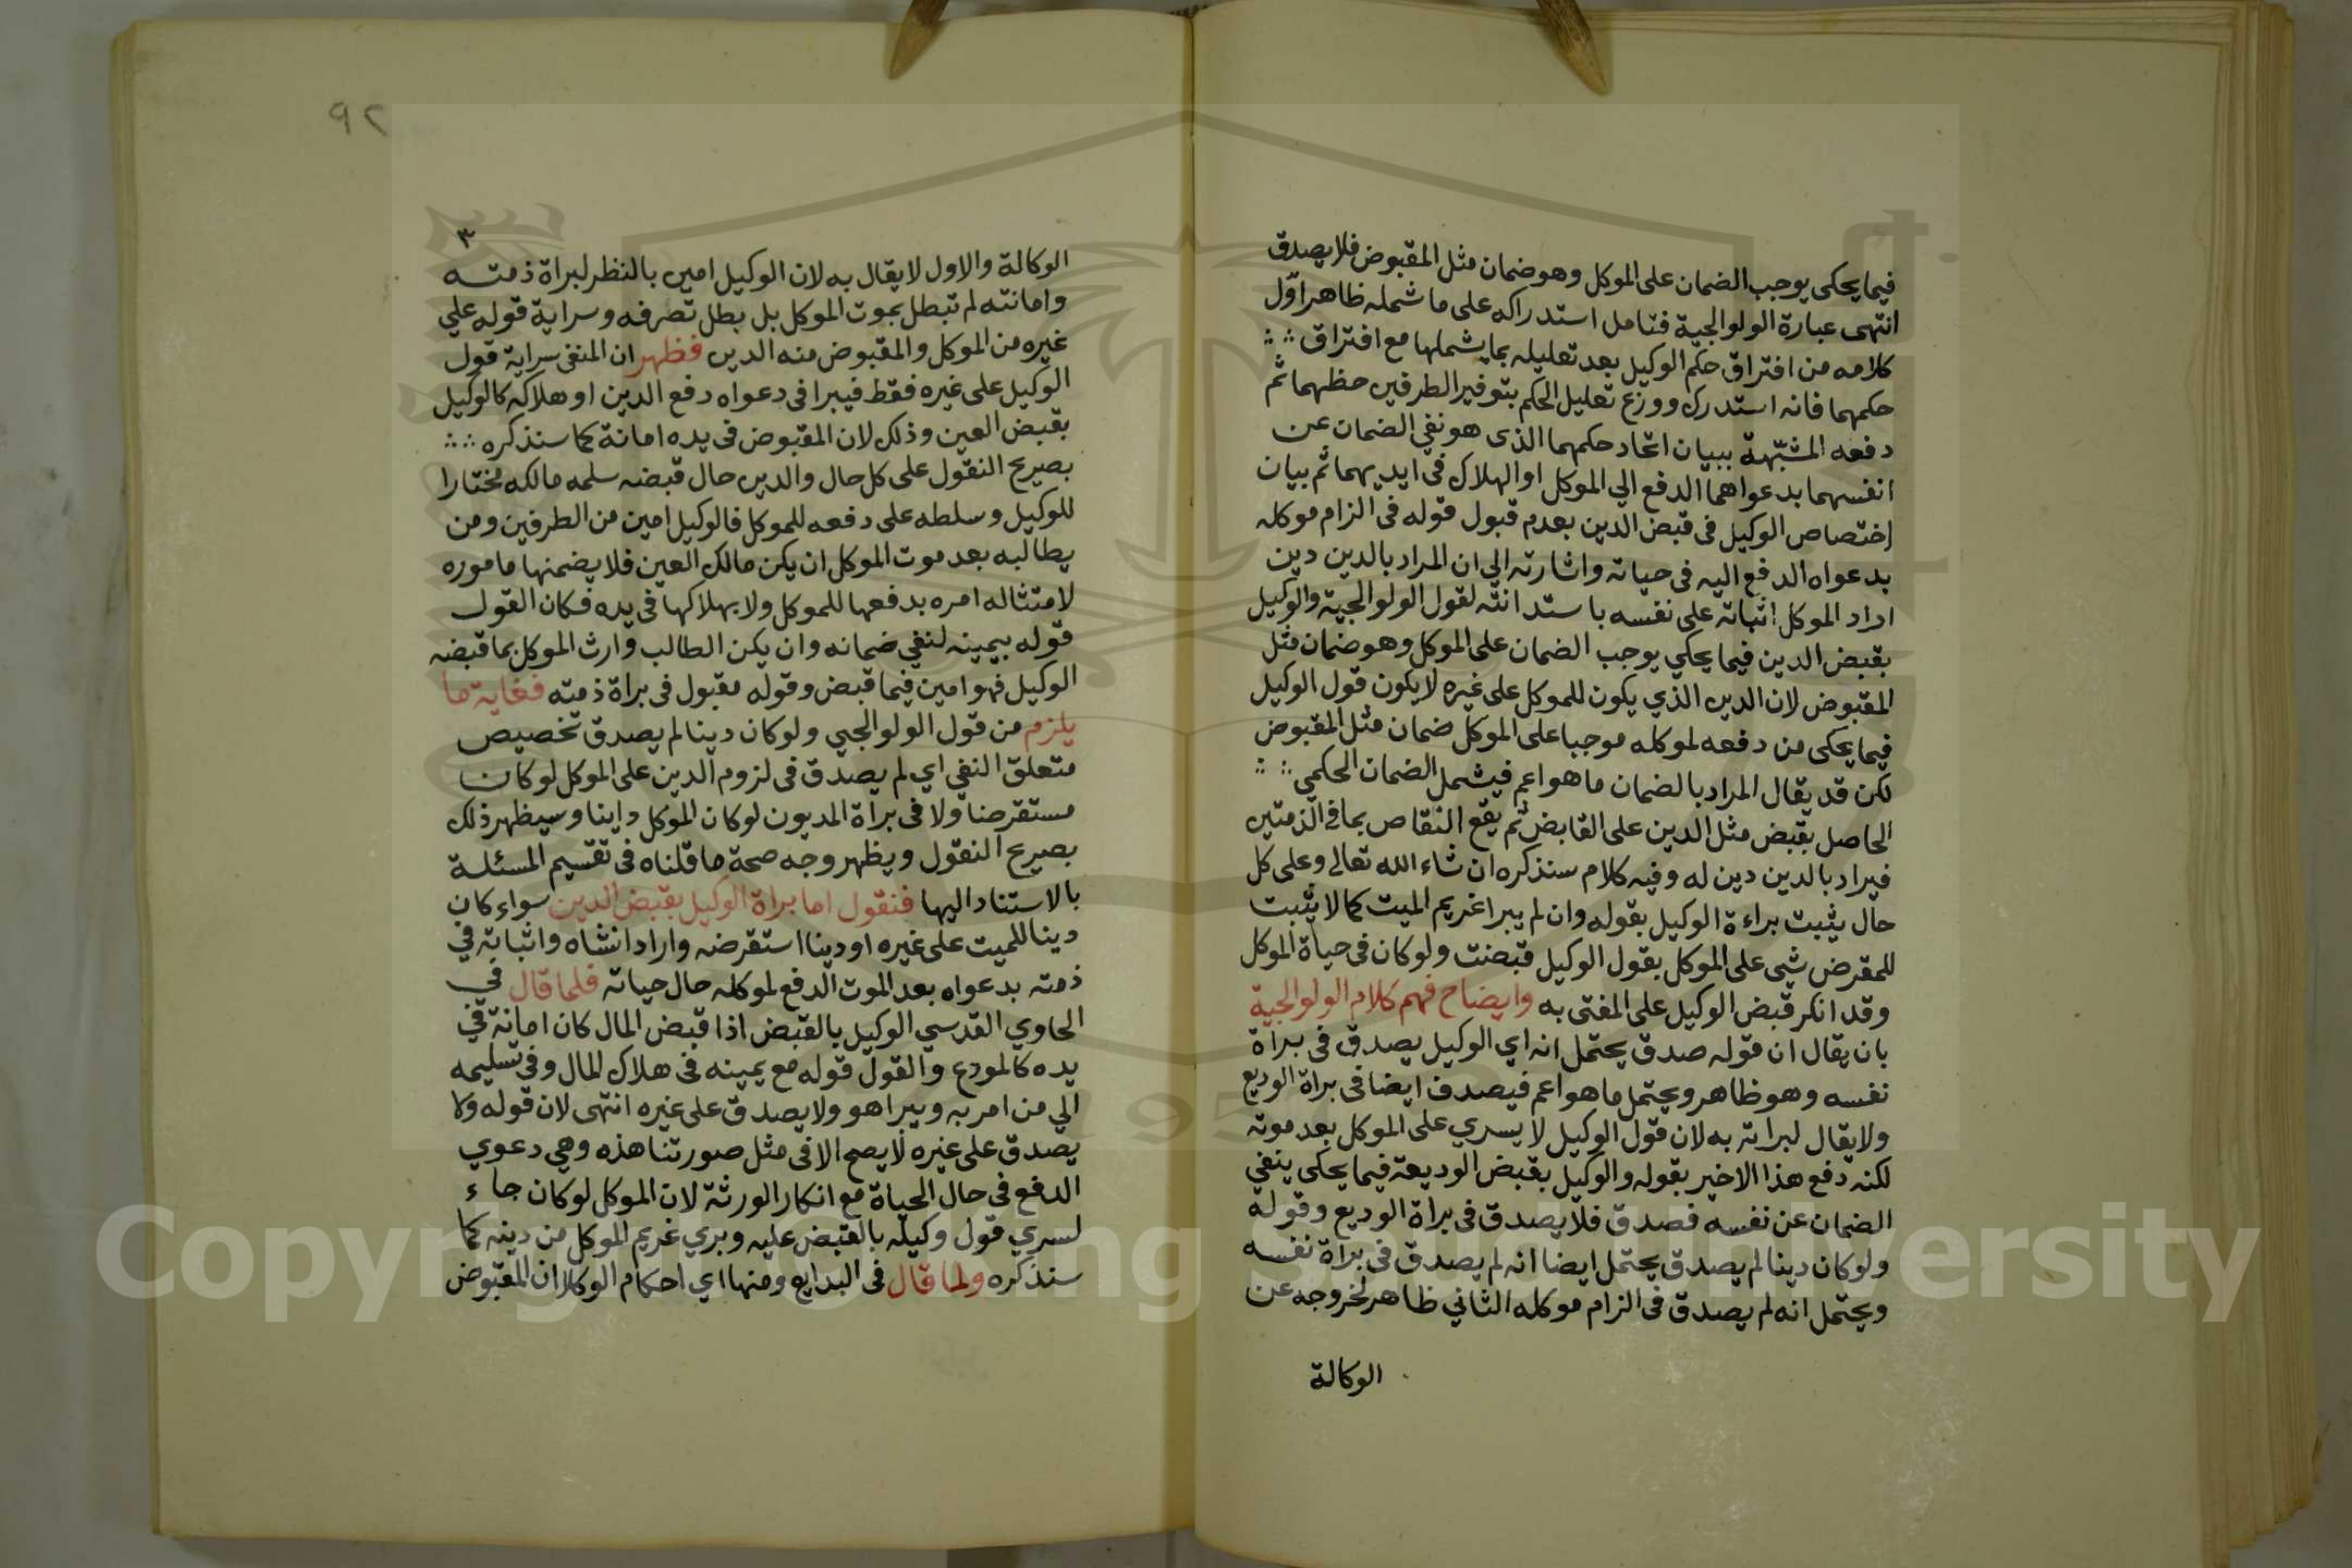 فيما يحكى يوجب الضمان على الموكل وهو ضمان مثل المقبوض فلا يصدق
انتهى عبارة الولوالجية فتامل استدراكه على ما شمله ظاهر اوّل
كلامه من افتراق حكم الوكيل بعد تعليله بما يشملها مع افتراق
حكمهما فانه استدرك ووزع تعليل الحكم بتوفير الطرفين حظهما ثم
دفعه المشبّهة ببيان اتحاد حكمهما الذى هو نفي الضمان عن
انفسهما بدعواهما الدفع الي الموكل او الهلاك في ايديهما ثم بيان
اختصاص الوكيل في قبض الدين بعدم قبول قوله في الزام موكله
بدعواه الدفع اليه في حياته واشارته الي ان المراد بالدين دين
اراد الموكل اثباته على نفسه باستدانته لقول الولوالجية والوكيل
بقبض الدين فيما يحكي يوجب الضمان على الموكل وهو ضمان مثل
المقبوض لان الدين الذي يكون للموكل على غيره لا يكون قول الوكيل
فيما يحكى من دفعه لموكله موجبا على الموكل ضمان مثل المقبوض
لكن قد يقال المراد بالضمان ما هو اعم فيشمل الضمان الحكمي
الحاصل بقبض مثل الدين على القابض ثم يقع التقاص بما في الذمتين
فيراد بالدين دين له وفيه كلام سنذكره ان شاء الله تعالى وعلى كل
حال يثبت براءة الوكيل بقوله وان لم يبرا غريم الميت كما لا يثبت
للمقرض شي على الموكل بقول الوكيل قبضت ولو كان في حياة الموكل
وقد انكر قبض الوكيل على المفتى به وايضاح فهم كلام الولوالجية
بان يقال ان قوله صدق يحتمل انه اي الوكيل يصدق في براة
نفسه وهو ظاهر ويحتمل ما هو اعم فيصدق ايضا في براة الوديع
ولا يقال لبراته به لان قول الوكيل لا يسري على الموكل بعد موته
لكنه دفع هذا الاخير بقوله والوكيل بقبض الوديعة فيما يحكى ينفي
الضمان عن نفسه فصدق فلا يصدق في براة الوديع وقوله
ولو كان دينا لم يصدق يحتمل ايضا انه لم يصدق في براة نفسه
ويحتمل انه لم يصدق في الزام موكله الثاني ظاهر لخروجه عن
الوكالة
٩٢
٣
الوكالة والاول لا يقال به لان الوكيل امين بالنظر لبراة ذمته
وامانته لم تبطل بموت الموكل بل بطل تصرفه وسراية قوله علي
غيره من الموكل والمقبوض منه الدين فظهر ان المنفى سراية قول
الوكيل على غيره فقط فيبرا في دعواه دفع الدين او هلاكه كالوكيل
بقبض العين وذلك لان المقبوض في يده امانة كما سنذكره
بصريح النقول على كل حال والدين حال قبضه سلمه مالكه مختارا
للوكيل وسلطه على دفعه للموكل فالوكيل امين من الطرفين ومن
يطالبه بعد موت الموكل ان يكن مالك العين فلا يضمنها ماموره
لامتثاله امره بدفعها للموكل ولا بهلاكها في يده فكان القول
قوله بيمينه لنفي ضمانه وان يكن الطالب وارث الموكل بما قبضه
الوكيل فهو امين فيما قبض وقوله مقبول في براة ذمته فغاية ما
يلزم من قول الولوالجي ولو كان دينا لم يصدق تخصيص
متعلق النفي اي لم يصدق في لزوم الدين على الموكل لو كان
مستقرضا ولا في براة المديون لو كان الموكل داينا وسيظهر ذلك
بصريح النقول ويظهر وجه صحة ما قلناه في تقسيم المسئلة
بالاستناد اليها فنقول اما براة الوكيل بقبض الدين سواء كان
دينا للميت على غيره او دينا استقرضه واراد انشاه واثباته في
ذمته بدعواه بعد الموت الدفع لموكله حال حياته فلما قال في
الحاوي القدسي الوكيل بالقبض اذا قبض المال كان امانة في
يده كالمودع والقول قوله مع يمينه في هلاك المال وفي تسليمه
الي من امر به ويبرا هو ولا يصدق على غيره انتهى لان قوله ولا
يصدق على غيره لا يصح الا في مثل صورتنا هذه وهي دعوي
الدفع في حال الحياة مع انكار الورثة لان الموكل لو كان جاء
لسري قول وكيله بالقبض عليه وبري غريم الموكل من دينه كما
سنذكره ولما قال في البدايع ومنها اي احكام الوكالا ان المقبوض
Copyright © King Saud University